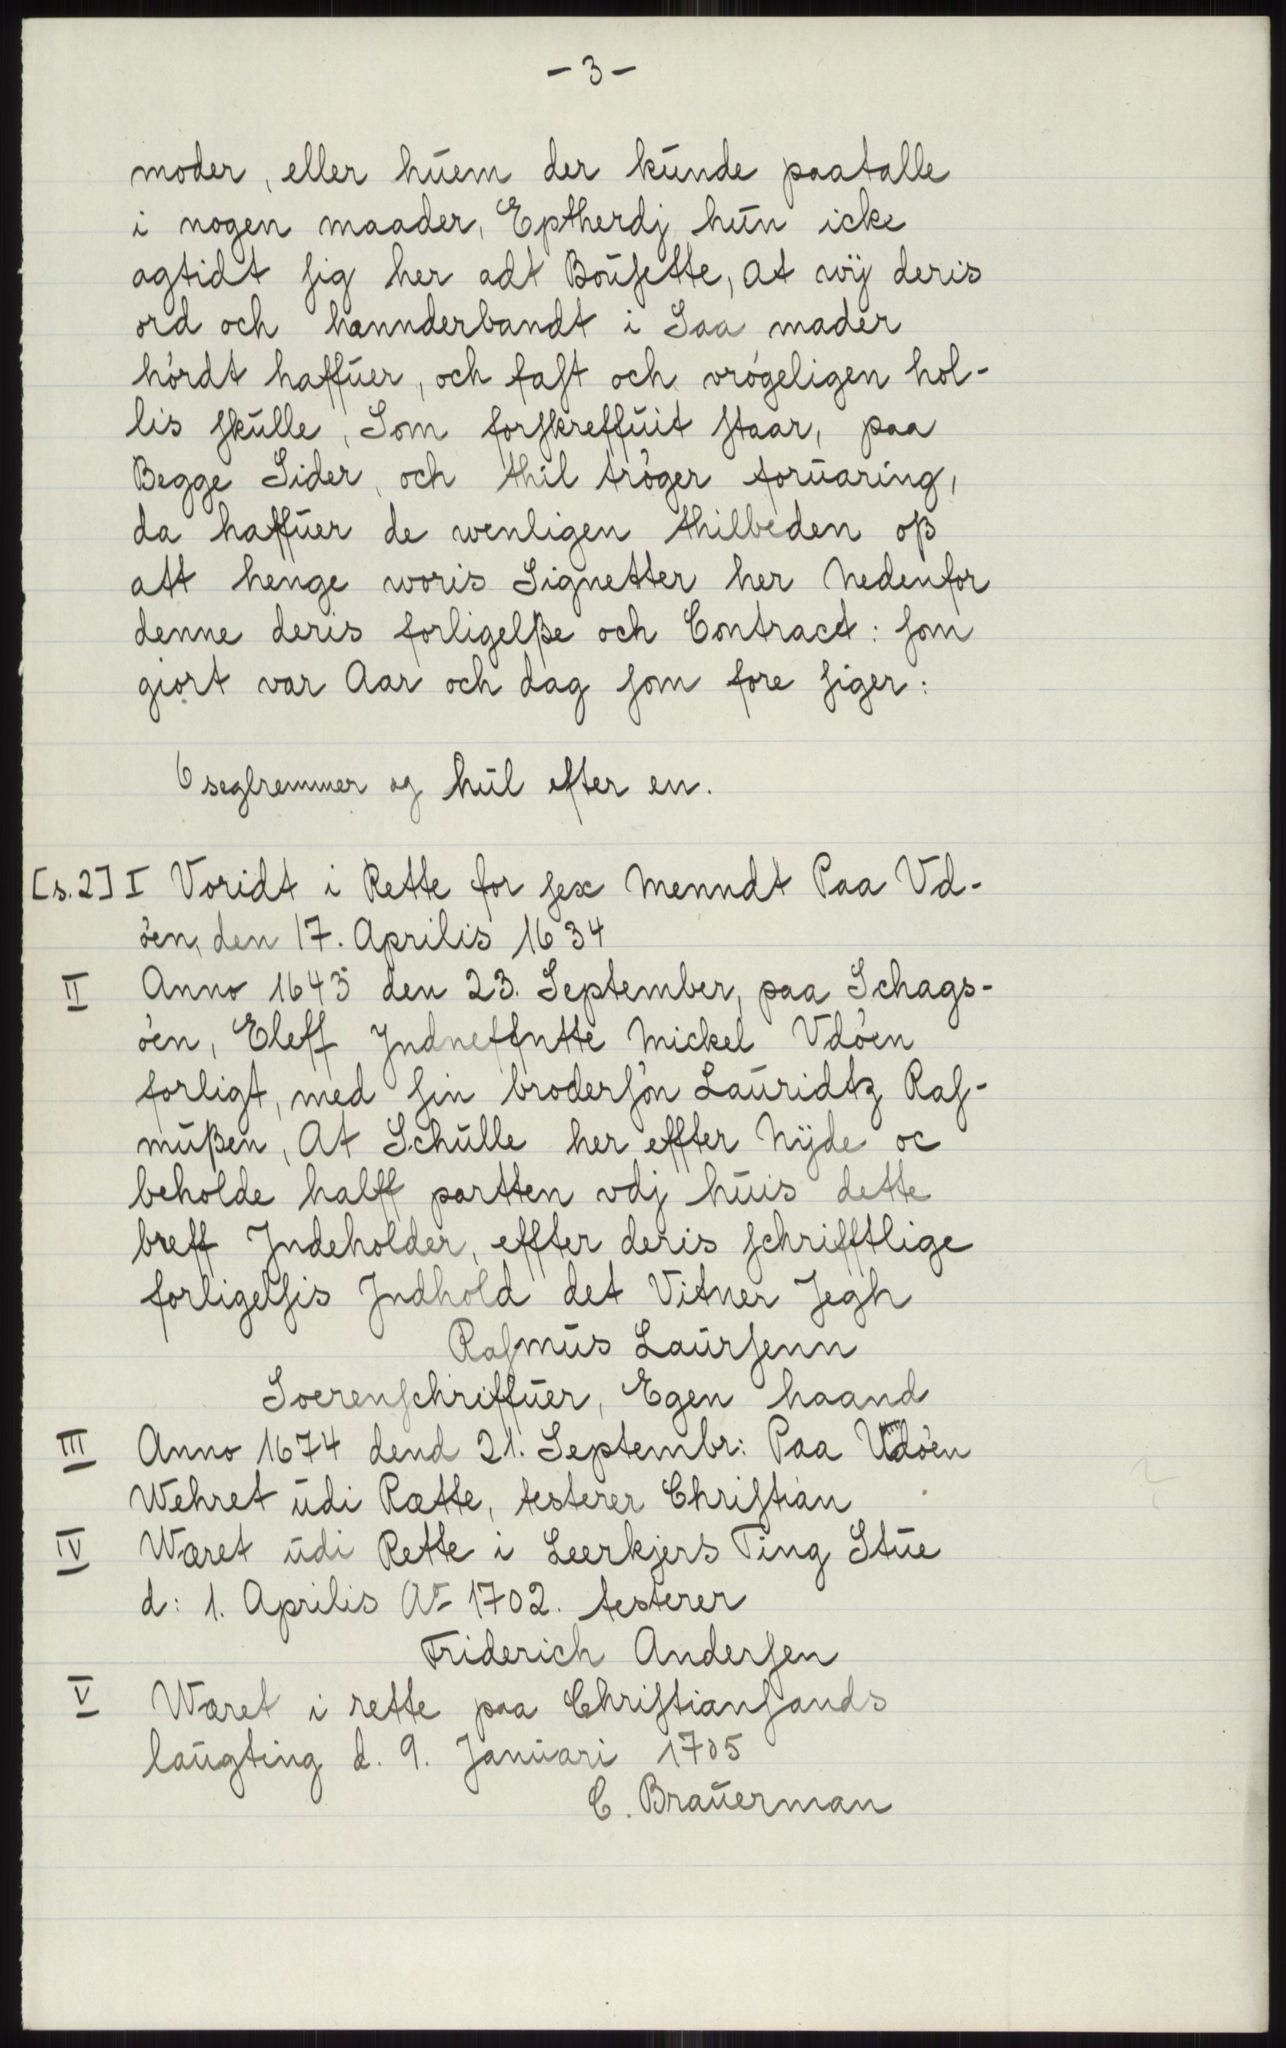 - 3 -
moder, eller huem der kunde paatalle
i nogen maader, Eptherdj hun icke
agtidt sig her adt Bousette, At wij deris
ord och hænnderbandt i Saa mader
hördt haffuer, och fast och vrögeligen hol-
lis skulle, Som forskreffuit staar, paa
Begge Sider, och thil tröger foruaring,
da haffuer de wenligen thilbeden oß
att henge woris Signetter her Nedenfor
denne deris forligelße och Contract: som
giort var Aar och dag som fore siger:
6 seglremmer og hul efter en.
[s. 2] I Voridt i Rette for sex Menndt Paa Vd-
öen, den 17. Aprilis 1634
II Anno 1643 den 23. September, paa Schags-
öen, Eleff Jndneffntte Mickel Vdöen
forligt, med sin brodersön Lauridtz Ras-
mußen, At Schulle her effter Nijde oc
beholde halff partten vdj huis dette
breff Jndeholder, effter deris schrifftlige
forligelsis Jndhold det Vitner Jegh
Rasmus Laursenn
Soerenschriffuer, Egen haand
III Anno 1674 dend 21. Septembr: Paa Udöen
Wehret udi Rætte, testerer Christian
IV Wæret udi Rette i Leerkjers Ting Stue
d: 1. Aprilis Ao 1702. testerer
Friderich Andersen
V Wæret i rette paa Christiansands
laugting d. 9. Januari 1705
C. Brauerman